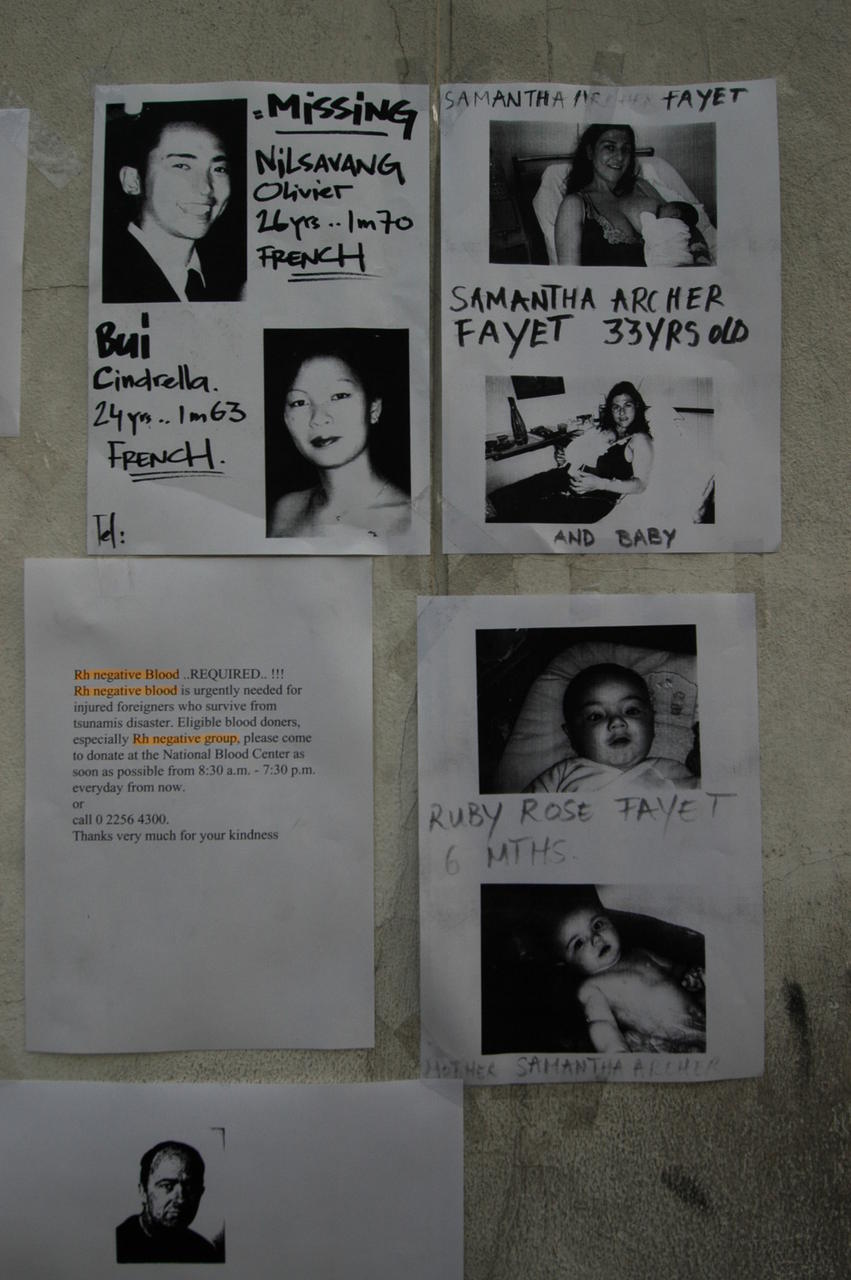 MISSING
NILSAVANG
Olivier
26yrs .. 1m70
FRENCH
Bui
Cindrella.
24yrs .. 1m63
FRENCH.
Tel:
SAMANTHA ARCHER FAYET
SAMANTHA ARCHER
FAYET 33YRS OLD
AND BABY
Rh negative Blood ..REQUIRED.. !!!
Rh negative blood is urgently needed for
injured foreigners who survive from
tsunamis disaster. Eligible blood doners,
especially Rh negative group, please come
to donate at the National Blood Center as
soon as possible from 8:30 a.m. - 7:30 p.m.
everyday from now.
or
call 0 2256 4300.
Thanks very much for your kindness
RUBY ROSE FAYET
6 MTHS.
MOTHER SAMANTHA ARCHER